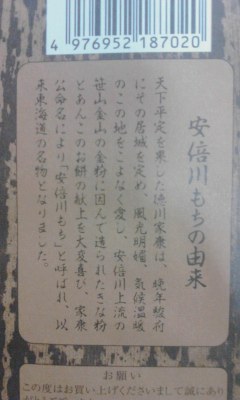 4 976952 187020
安倍川もちの由来
天下平定を果した徳川家康は、晩年駿府
にその居城を定め、風光明媚、気候温暖
のこの地をこよなく愛し、安倍川上流の
笹山金山の金粉に因んで造られたきな粉
とあんこのお餅の献上を大変喜び、家康
公命名により「安倍川もち」と呼ばれ、以
来東海道の名物となりました。
お願い
この度はお買い上げくださいまして誠にあり